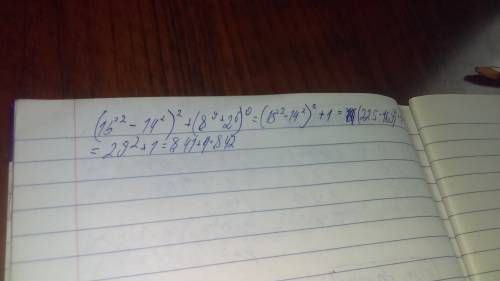 (15² - 14²)² + (8⁹+2⁶)⁰ = (15² - 14²)² + 1 = (225-
= 29² + 1 = 841 + 1 = 842